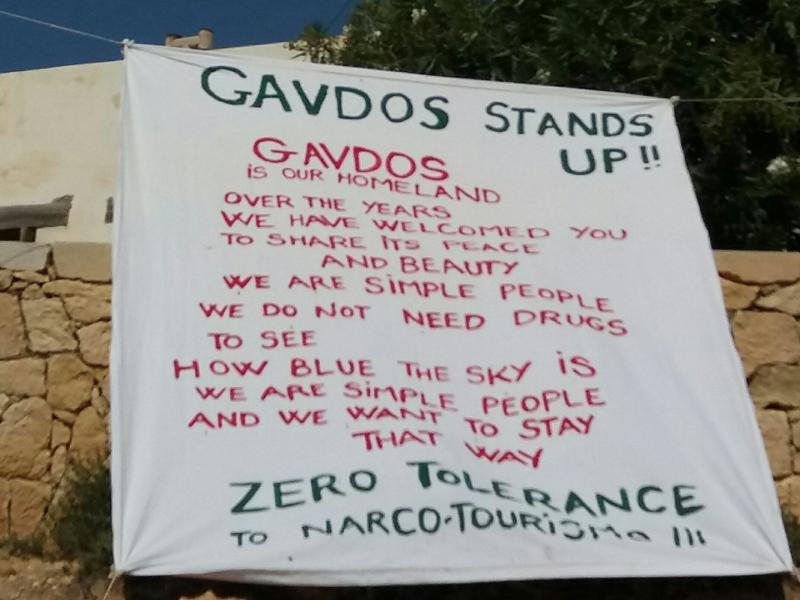 GAVDOS STANDS
UP!!
GAVDOS
iS OUR HOMELAND
OVER THE YEARS
WE HAVE WELCOMED YOU
TO SHARE ITS PEACE
AND BEAUTY
WE ARE SiMPLE PEOPLE
WE DO NOT NEED DRUGS
TO SEE
HOW BLUE THE SKY iS
WE ARE SiMPLE PEOPLE
AND WE WANT TO STAY
THAT WAY
ZERO TOLERANCE
TO NARCO-TOURiSMO !!!